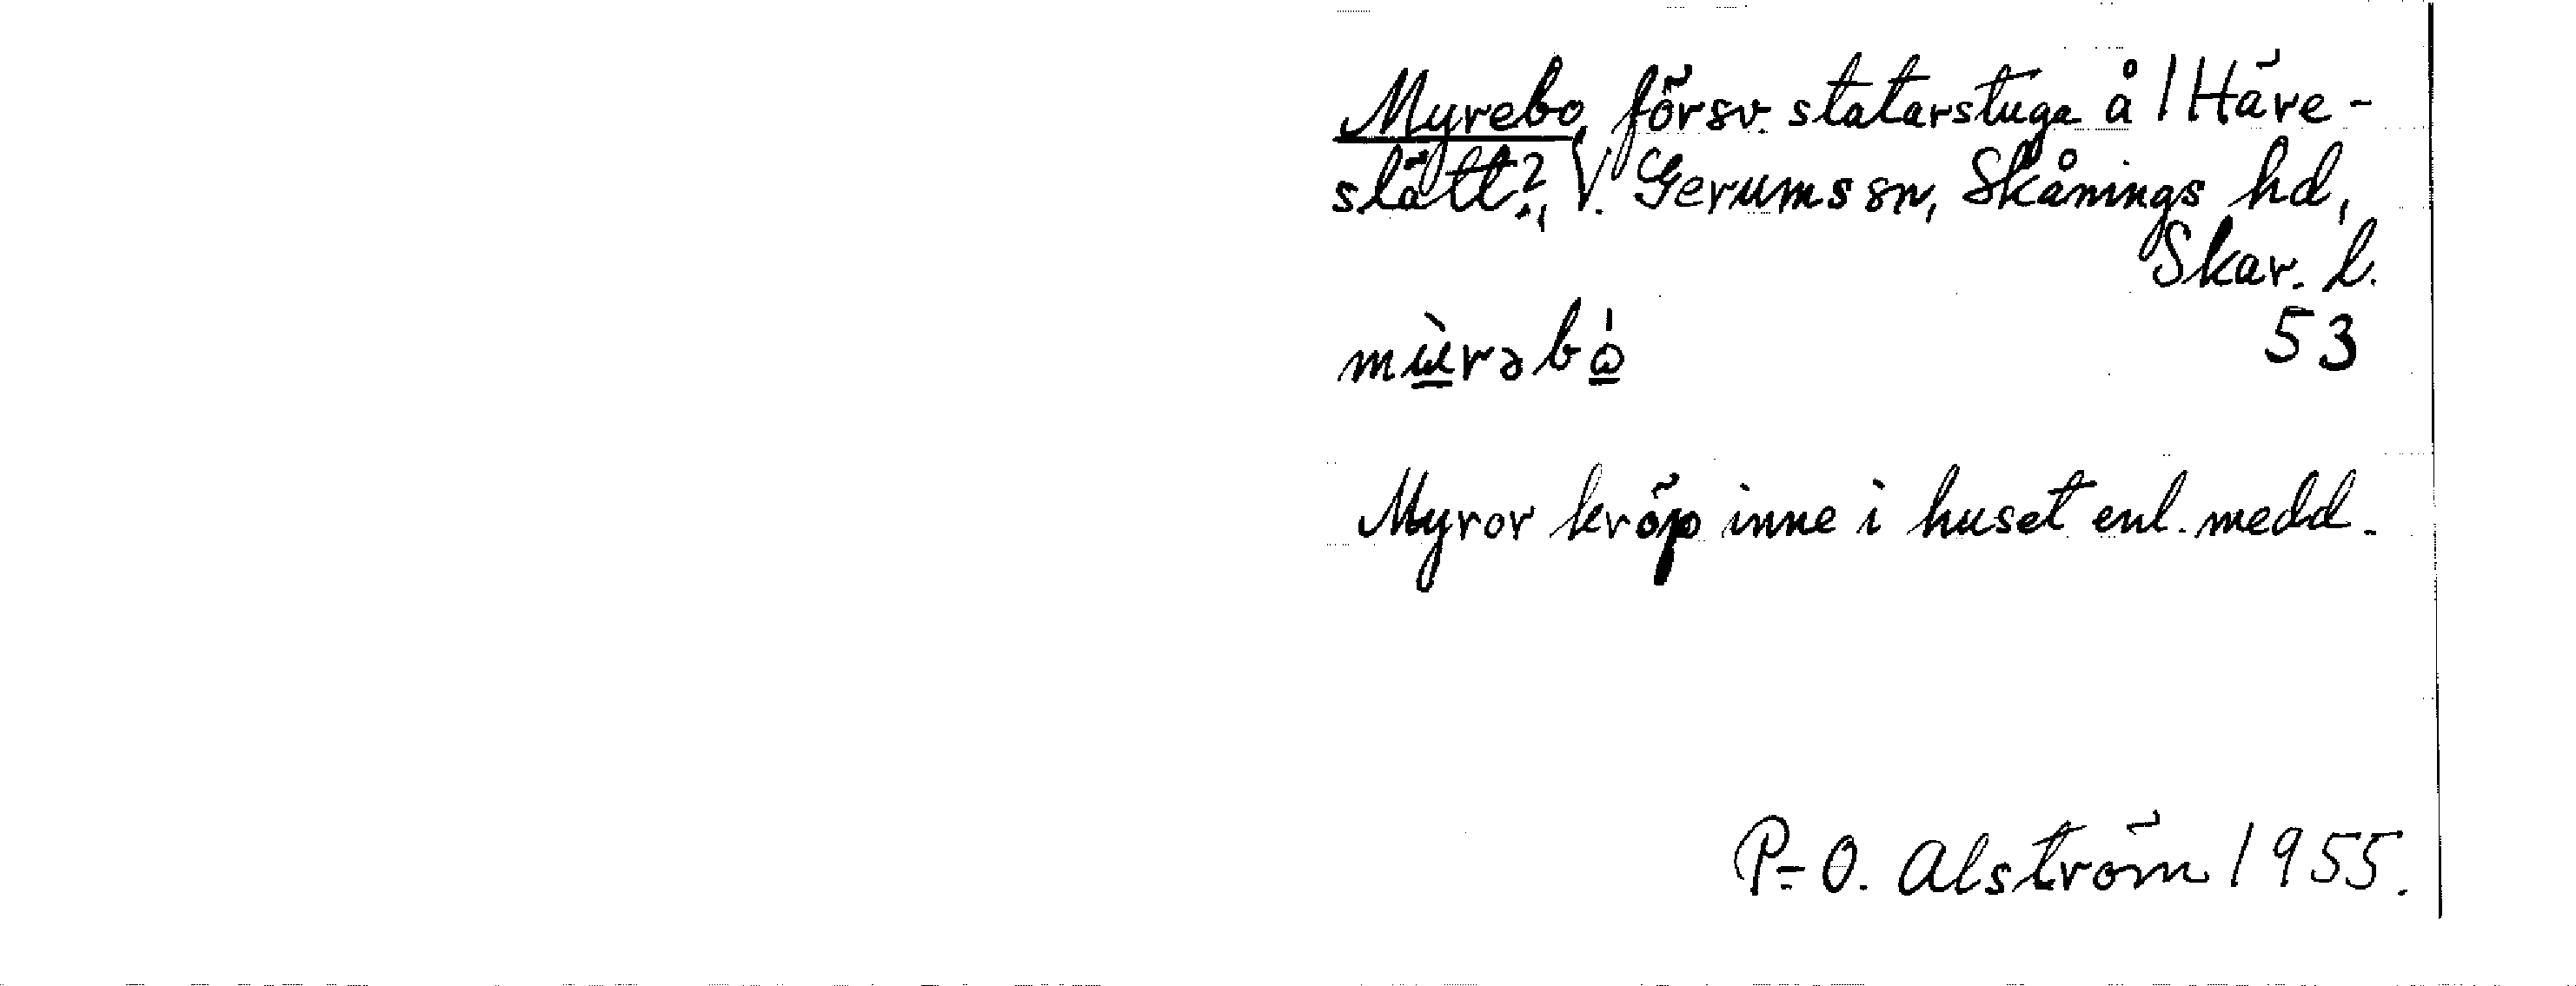 Myrebo, försv. statarstuga å 1 Häre-
slätt?, V. Gerums sn, Skånings hd,
Skar. l.
53
Myror kröp inne i huset enl. medd.
P.-O. Alström 1955.